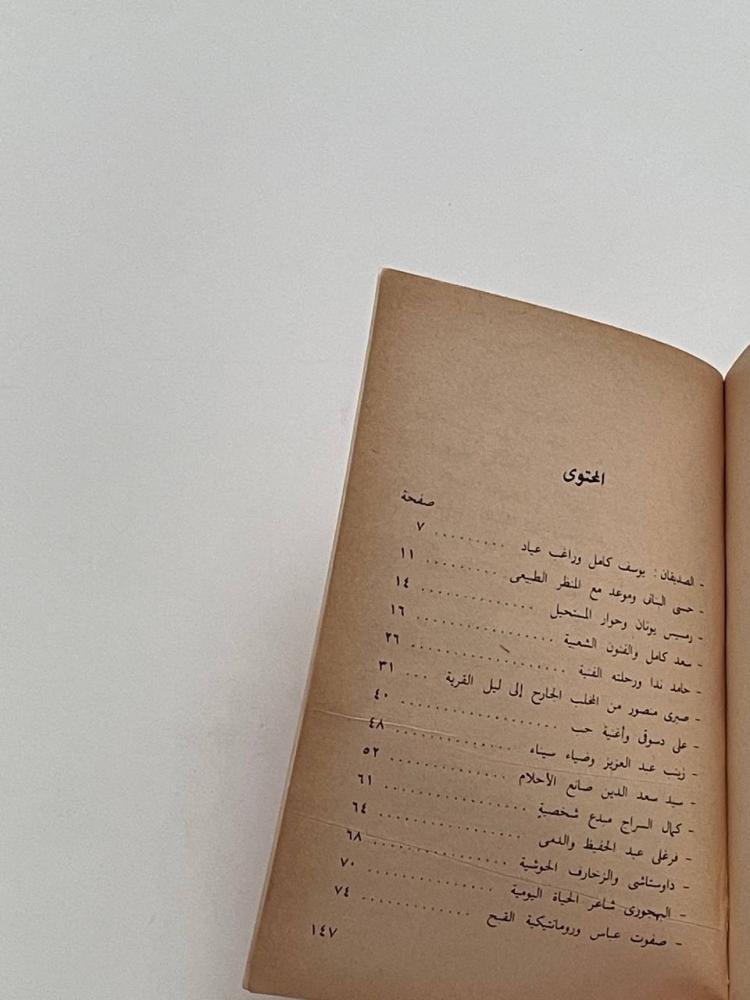 المحتوى
صفحة
- الصديقان : يوسف كامل وراغب عياد ......... ٧
- حسنى البنانى وموعد مع المنظر الطبيعى ......... ١١
- رمسيس يونان وحوار المستحيل ............. ١٤
- سعد كامل والفنون الشعبية ................ ١٦
- حامد ندا ورحلته الفنية .................. ٢٦
- صبرى منصور من المخلب الجارح إلى ليل القرية ... ٣١
- على دسوقى وأغنية حب .................. ٤٠
- زينب عبد العزيز وضياء سيناء ............. ٤٨
- سيد سعد الدين صانع الأحلام ............. ٥٢
- كمال السراج مبدع شخصية ................ ٦١
- فرغلى عبد الحفيظ والدمى ................ ٦٤
- داوستاشى والزخارف الحوشية ............... ٦٨
- البهجورى شاعر الحياة اليومية .............. ٧٠
- صفوت عباس ورومانتيكية القبح ............ ٧٤
١٤٧